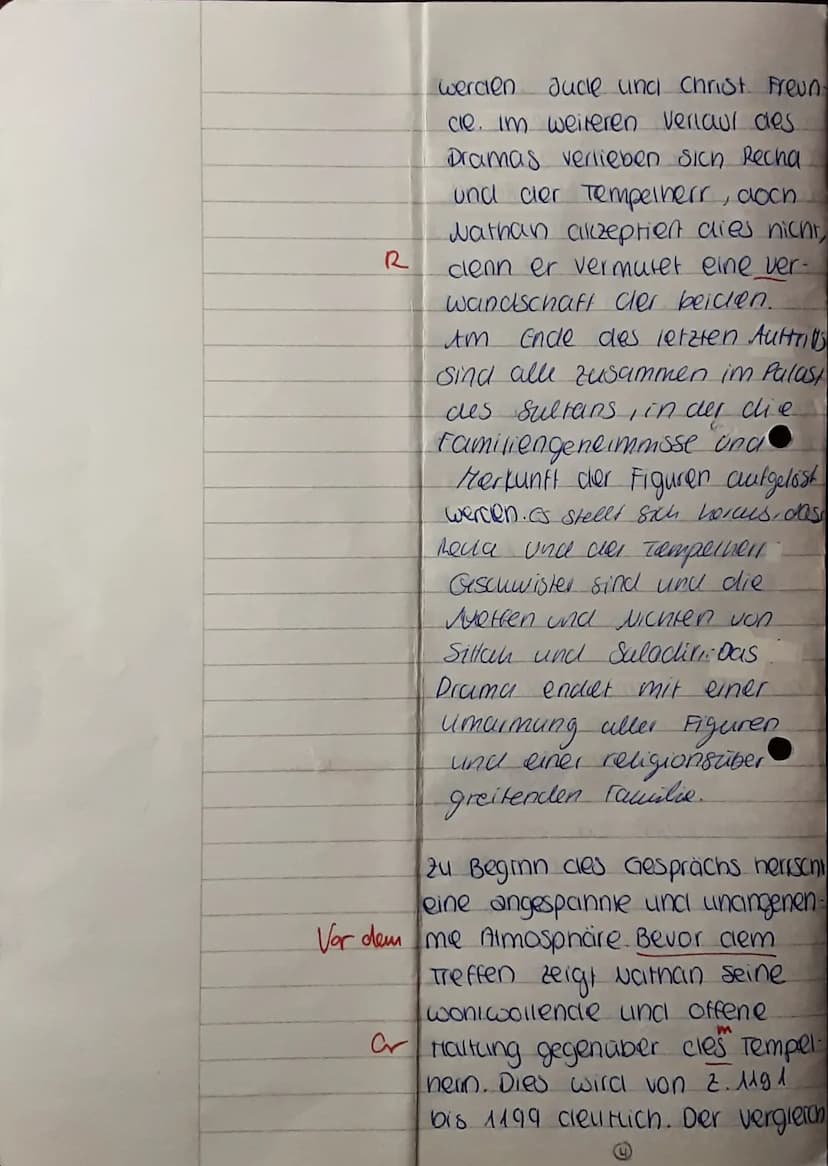 werden Jude und Christ Freun-
de. Im weiteren Verlauf des
Dramas verlieben sich Recha
und der Tempelherr, doch
Nathan akzeptiert dies nicht,
R denn er vermutet eine ver-
wandschaft der beiden.
Am Ende des letzten Auftritts
sind alle zusammen im Palast
des Sultans, in der die
Familiengeheimnisse und
Herkunft der Figuren aufgelöst
werden. Es stellt sich heraus, dass
Recha und der Tempelherr
Geschwister sind und die
Neffen und Nichten von
Sittah und Saladin. Das
Drama endet mit einer
Umarmung aller Figuren
und einer religionsüber
greifenden Familie.
Zu Beginn des Gesprächs herrscht
eine angespannte und unangeneh-
Vor dem me Atmosphäre. Bevor dem
Treffen zeigt Nathan seine
wohlwollende und offene
Gr Haltung gegenüber des m Tempel-
herrn. Dies wird von Z. 1191
bis 1199 deutlich. Der Vergleich
4